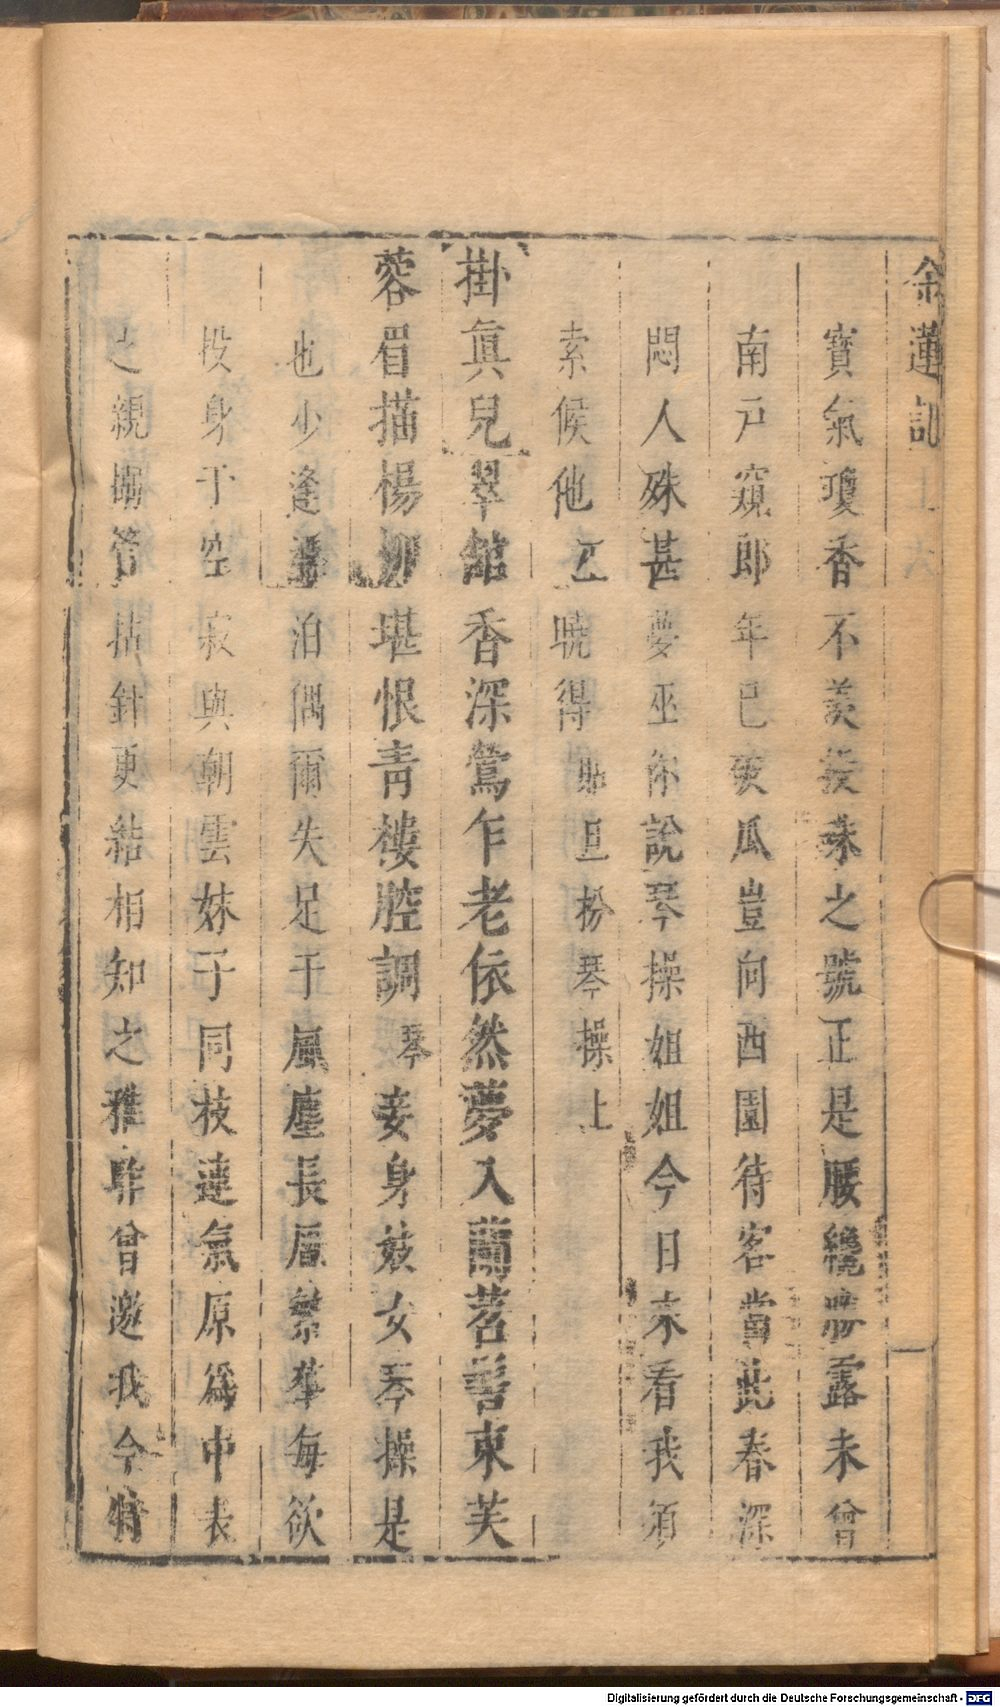 金蓮記
寶氣瓊香不羨投來之號正是腰纔勝露未曾
南戶窺郎年已破瓜豈向西園待客當此春深
悶人殊甚夢巫你說琴操姐姐今日來看我須
索候他乙曉得貼旦扮琴操上
掛眞兒翠館香深鶯乍老依然夢入蘭苕描東芙
蓉眉描楊柳堪恨青樓腔調琴妾身妓女琴操是
也少逢漂泊偶爾失足于風塵長厭繁華每欲
投身于空寂與朝雲妹子同枝連氣原爲中表
之親搦管拈針更結相知之雅昨曾邀我今特
Digitalisierung gefördert durch die Deutsche Forschungsgemeinschaft - DFG